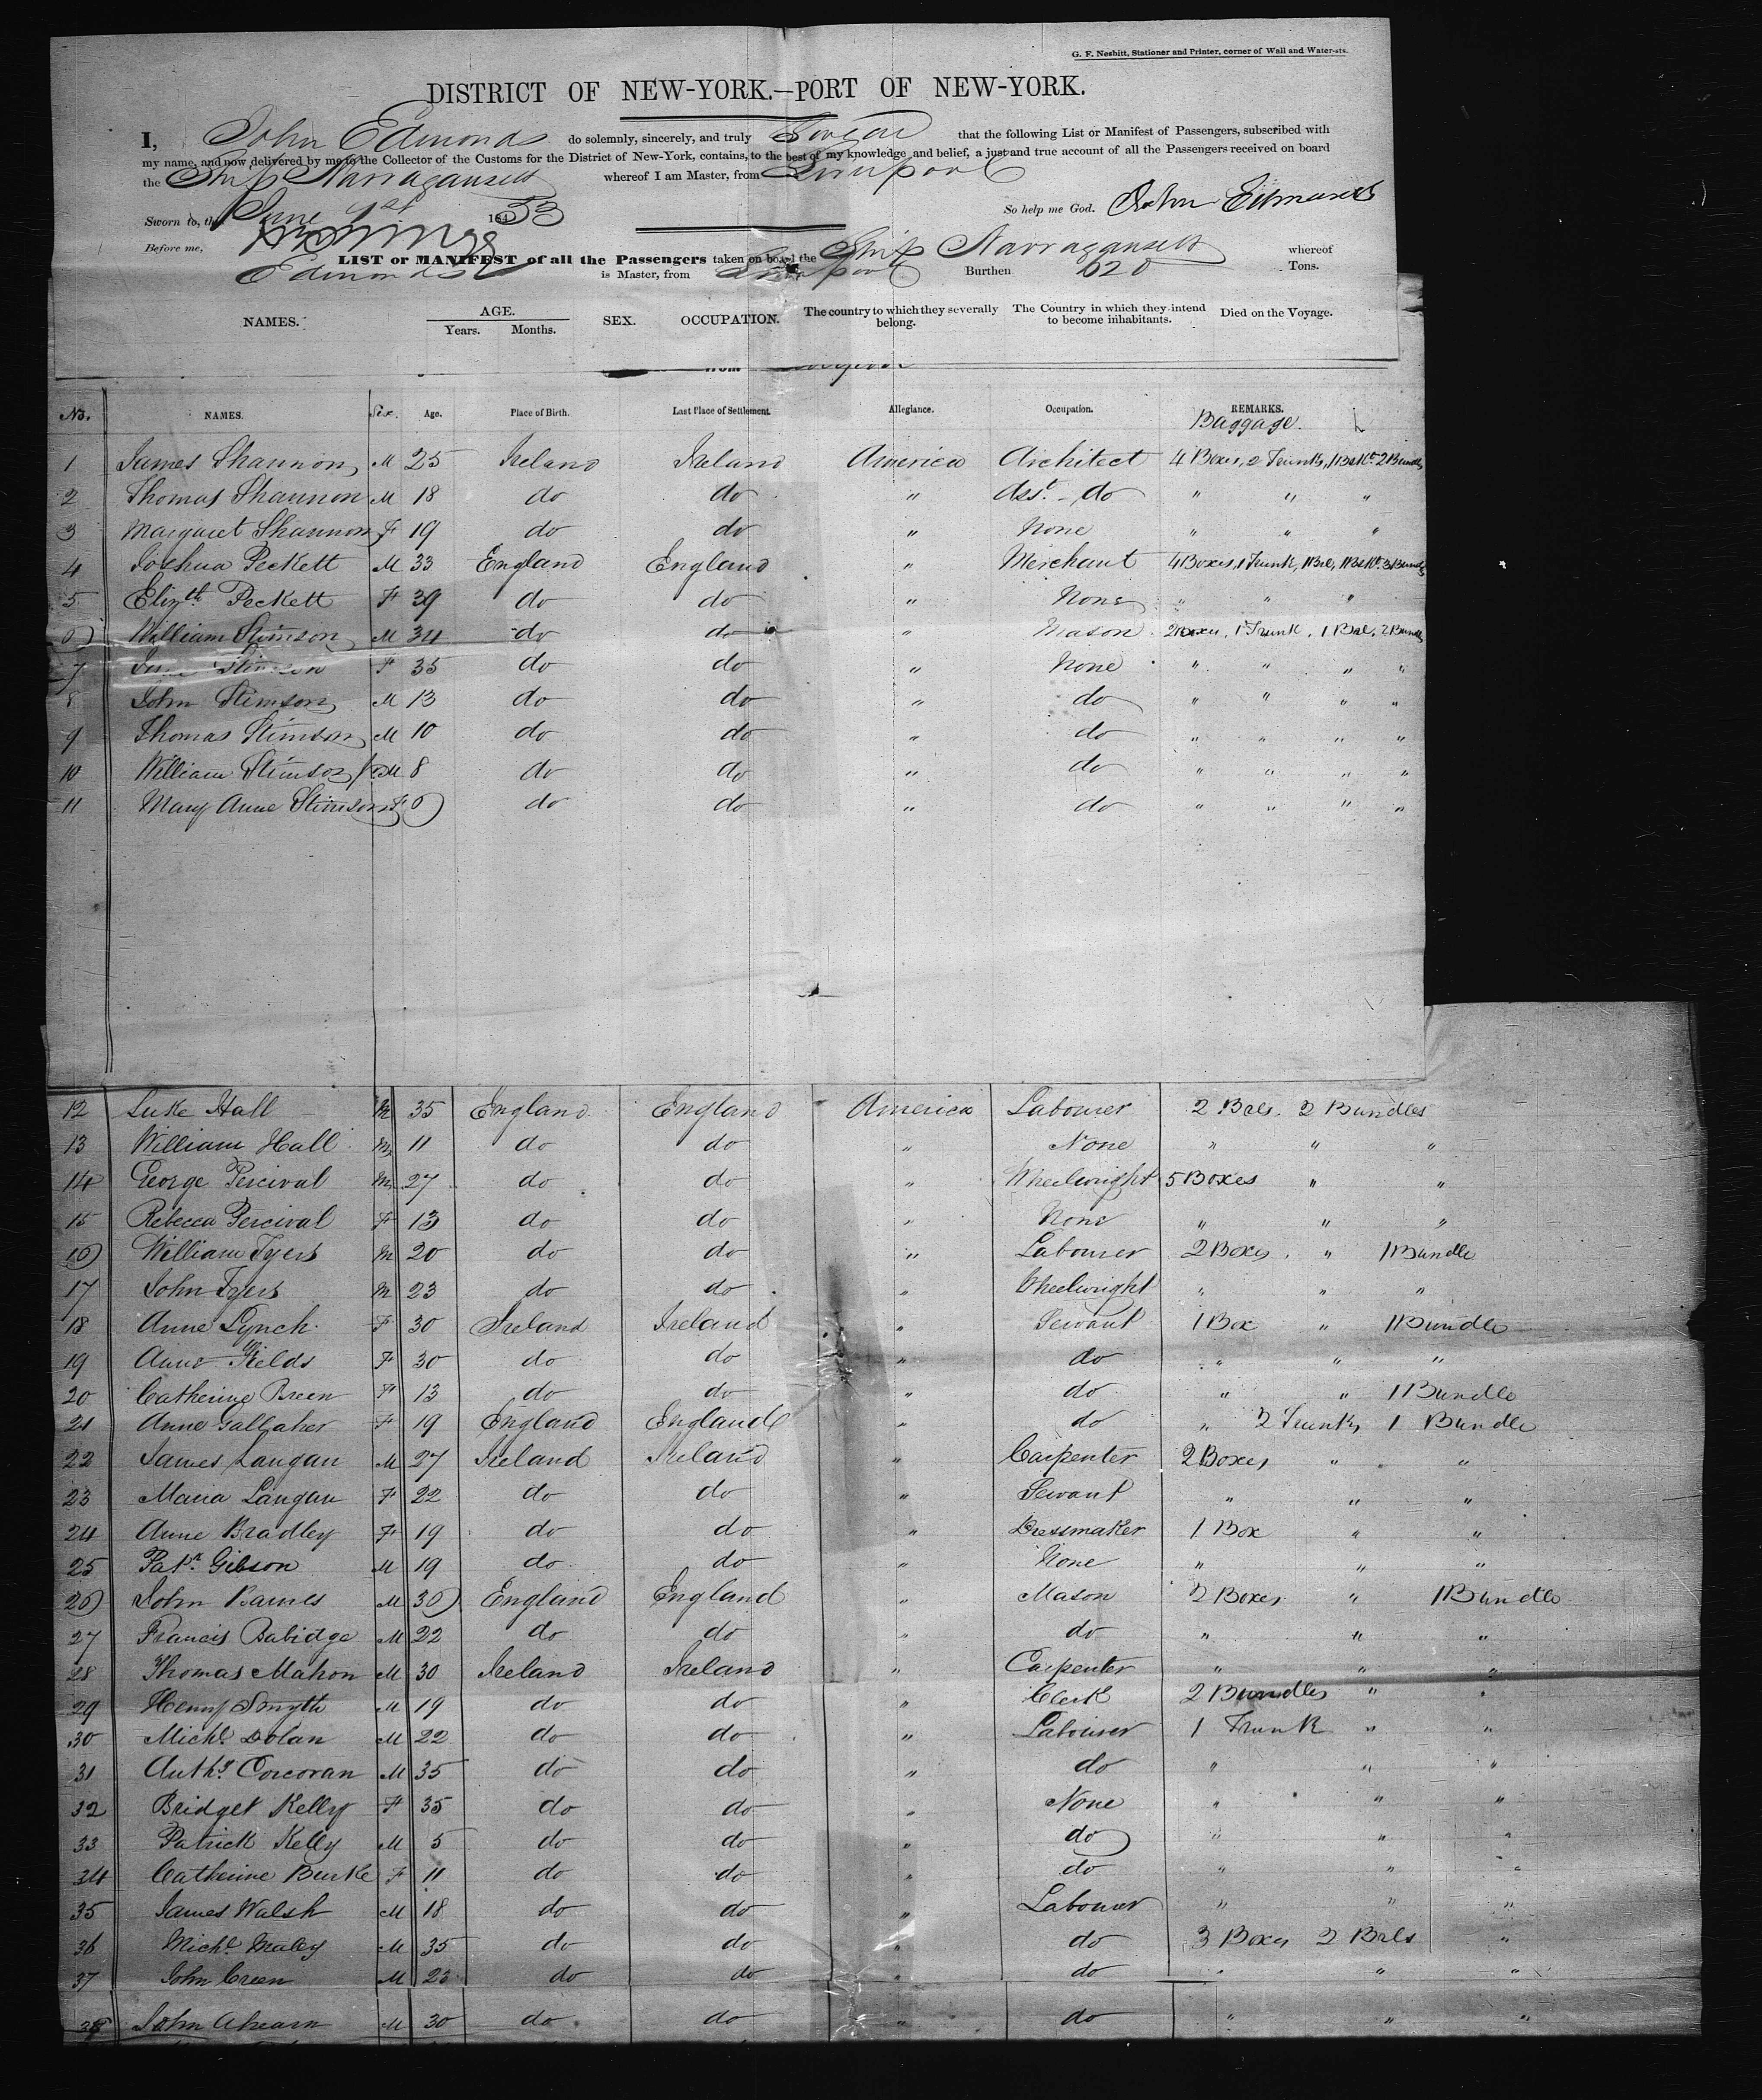 G. F. Nesbitt, Stationer and Printer, corner of Wall and Water-sts.
DISTRICT OF NEW-YORK.—PORT OF NEW-YORK.
I, John Edmonds do solemnly, sincerely, and truly Swear that the following List or Manifest of Passengers, subscribed with
my name, and now delivered by me to the Collector of the Customs for the District of New-York, contains, to the best of my knowledge and belief, a just and true account of all the Passengers received on board
the Ship Narragansett whereof I am Master, from Liverpool
Sworn to, the June 1st 1853 So help me God. John Edmonds
Before me,
LIST or MANIFEST of all the Passengers taken on board the Ship Narragansett whereof
Edmonds is Master, from Liverpool Burthen 620 Tons.
NAMES. AGE. Years. Months. SEX. OCCUPATION. The country to which they severally belong. The Country in which they intend to become inhabitants. Died on the Voyage.
from Liverpool
No. NAMES. Sex. Age. Place of Birth. Last Place of Settlement. Allegiance. Occupation. REMARKS.
Baggage.
1 James Shannon M 25 Ireland Ireland America Architect 4 Boxes, 2 Trunks, 1 Bskt 2 Bundls
2 Thomas Shannon M 18 do do " Asst. do " " "
3 Margaret Shannon F 19 do do " None " " "
4 Joshua Peckett M 33 England England " Merchant 4 Boxes, 1 Trunk, 1 Brl, 1 Bskt. 3 Bundls
5 Elizth Peckett F 39 do do " None " " "
6 William Stimson M 34 do do " Mason 2 Boxes, 1 Trunk, 1 Brl, 2 Bundls
7 Stimson F 35 do do " None " " " "
8 John Stimson M 13 do do " do " " " "
9 Thomas Stimson M 10 do do " do " " " "
10 William Stimson M 8 do do " do " " " "
11 Mary Anne Stimson F 6 do do " do " " " "
12 Luke Hall M 35 England England America Labourer 2 Brls. 2 Bundles
13 William Hall M 11 do do " None " " "
14 George Percival M 27 do do " Wheelwright 5 Boxes " "
15 Rebecca Percival F 13 do do " None " " "
16 William Tyers M 20 do do " Labourer 2 Boxes " 1 Bundle
17 John Tyers M 23 do do " Wheelwright " " "
18 Anne Lynch F 30 Ireland Ireland " Servant 1 Box " 1 Bundle
19 Anne Fields F 30 do do " do " " "
20 Catherine Breen F 13 do do " do " " 1 Bundle
21 Anne Gallaher F 19 England England " do " 2 Trunks 1 Bundle
22 James Langan M 27 Ireland Ireland " Carpenter 2 Boxes " "
23 Maria Langan F 22 do do " Servant " " "
24 Anne Bradley F 19 do do " Dressmaker 1 Box " "
25 Patk. Gibson M 19 do do " None " " "
26 John Barnes M 36 England England " Mason 2 Boxes " 1 Bundle
27 Francis Babidge M 22 do do " do " " "
28 Thomas Mahon M 30 Ireland Ireland " Carpenter " " "
29 Henry Smyth M 19 do do " Clerk 2 Bundles " "
30 Michl. Dolan M 22 do do " Labourer 1 Trunk " "
31 Anthy. Corcoran M 35 do do " do " " "
32 Bridget Kelly F 35 do do " None " " "
33 Patrick Kelly M 5 do do " do " " "
34 Catherine Burke F 11 do do " do " " "
35 James Walsh M 18 do do " Labourer " " "
36 Michl. Maley M 35 do do " do 3 Boxes 2 Brls "
37 John Creen M 23 do do " do " " "
38 John Ahearn M 30 do do " do " " "